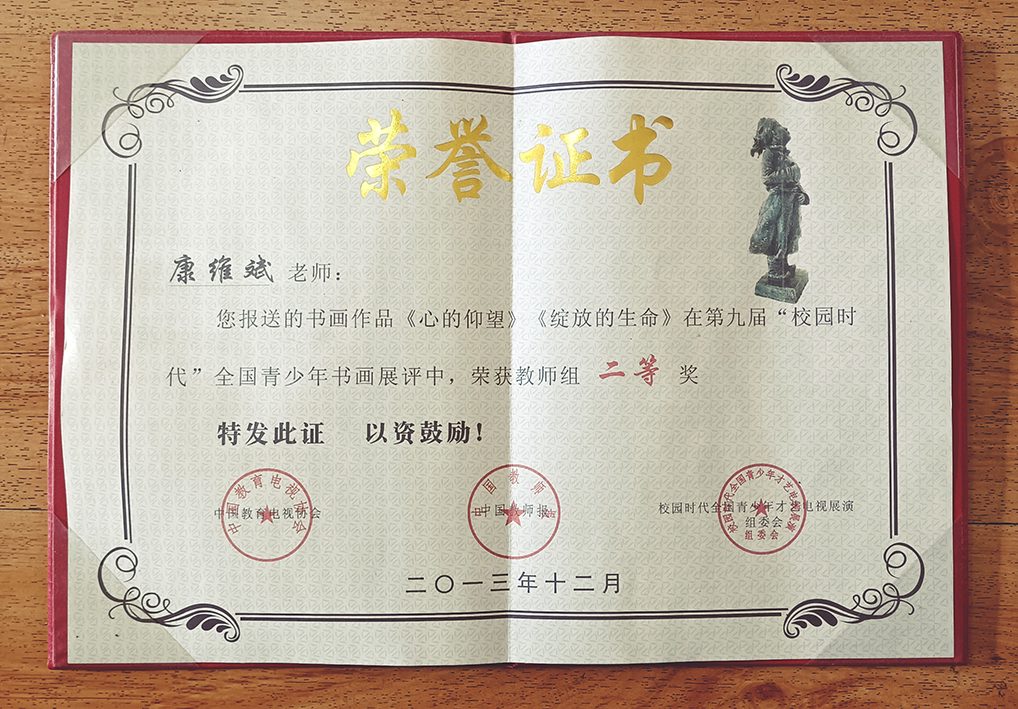 荣誉证书
康维斌 老师：
您报送的书画作品《心的仰望》《绽放的生命》在第九届“校园时
代”全国青少年书画展评中，荣获教师组 二等 奖
特发此证 以资鼓励！
中国教育电视协会
中国教育电视协会
中国教师报
中国教师报
校园时代全国青少年才艺电视展演
组委会
校园时代全国青少年才艺电视展演
组委会
二〇一三年十二月